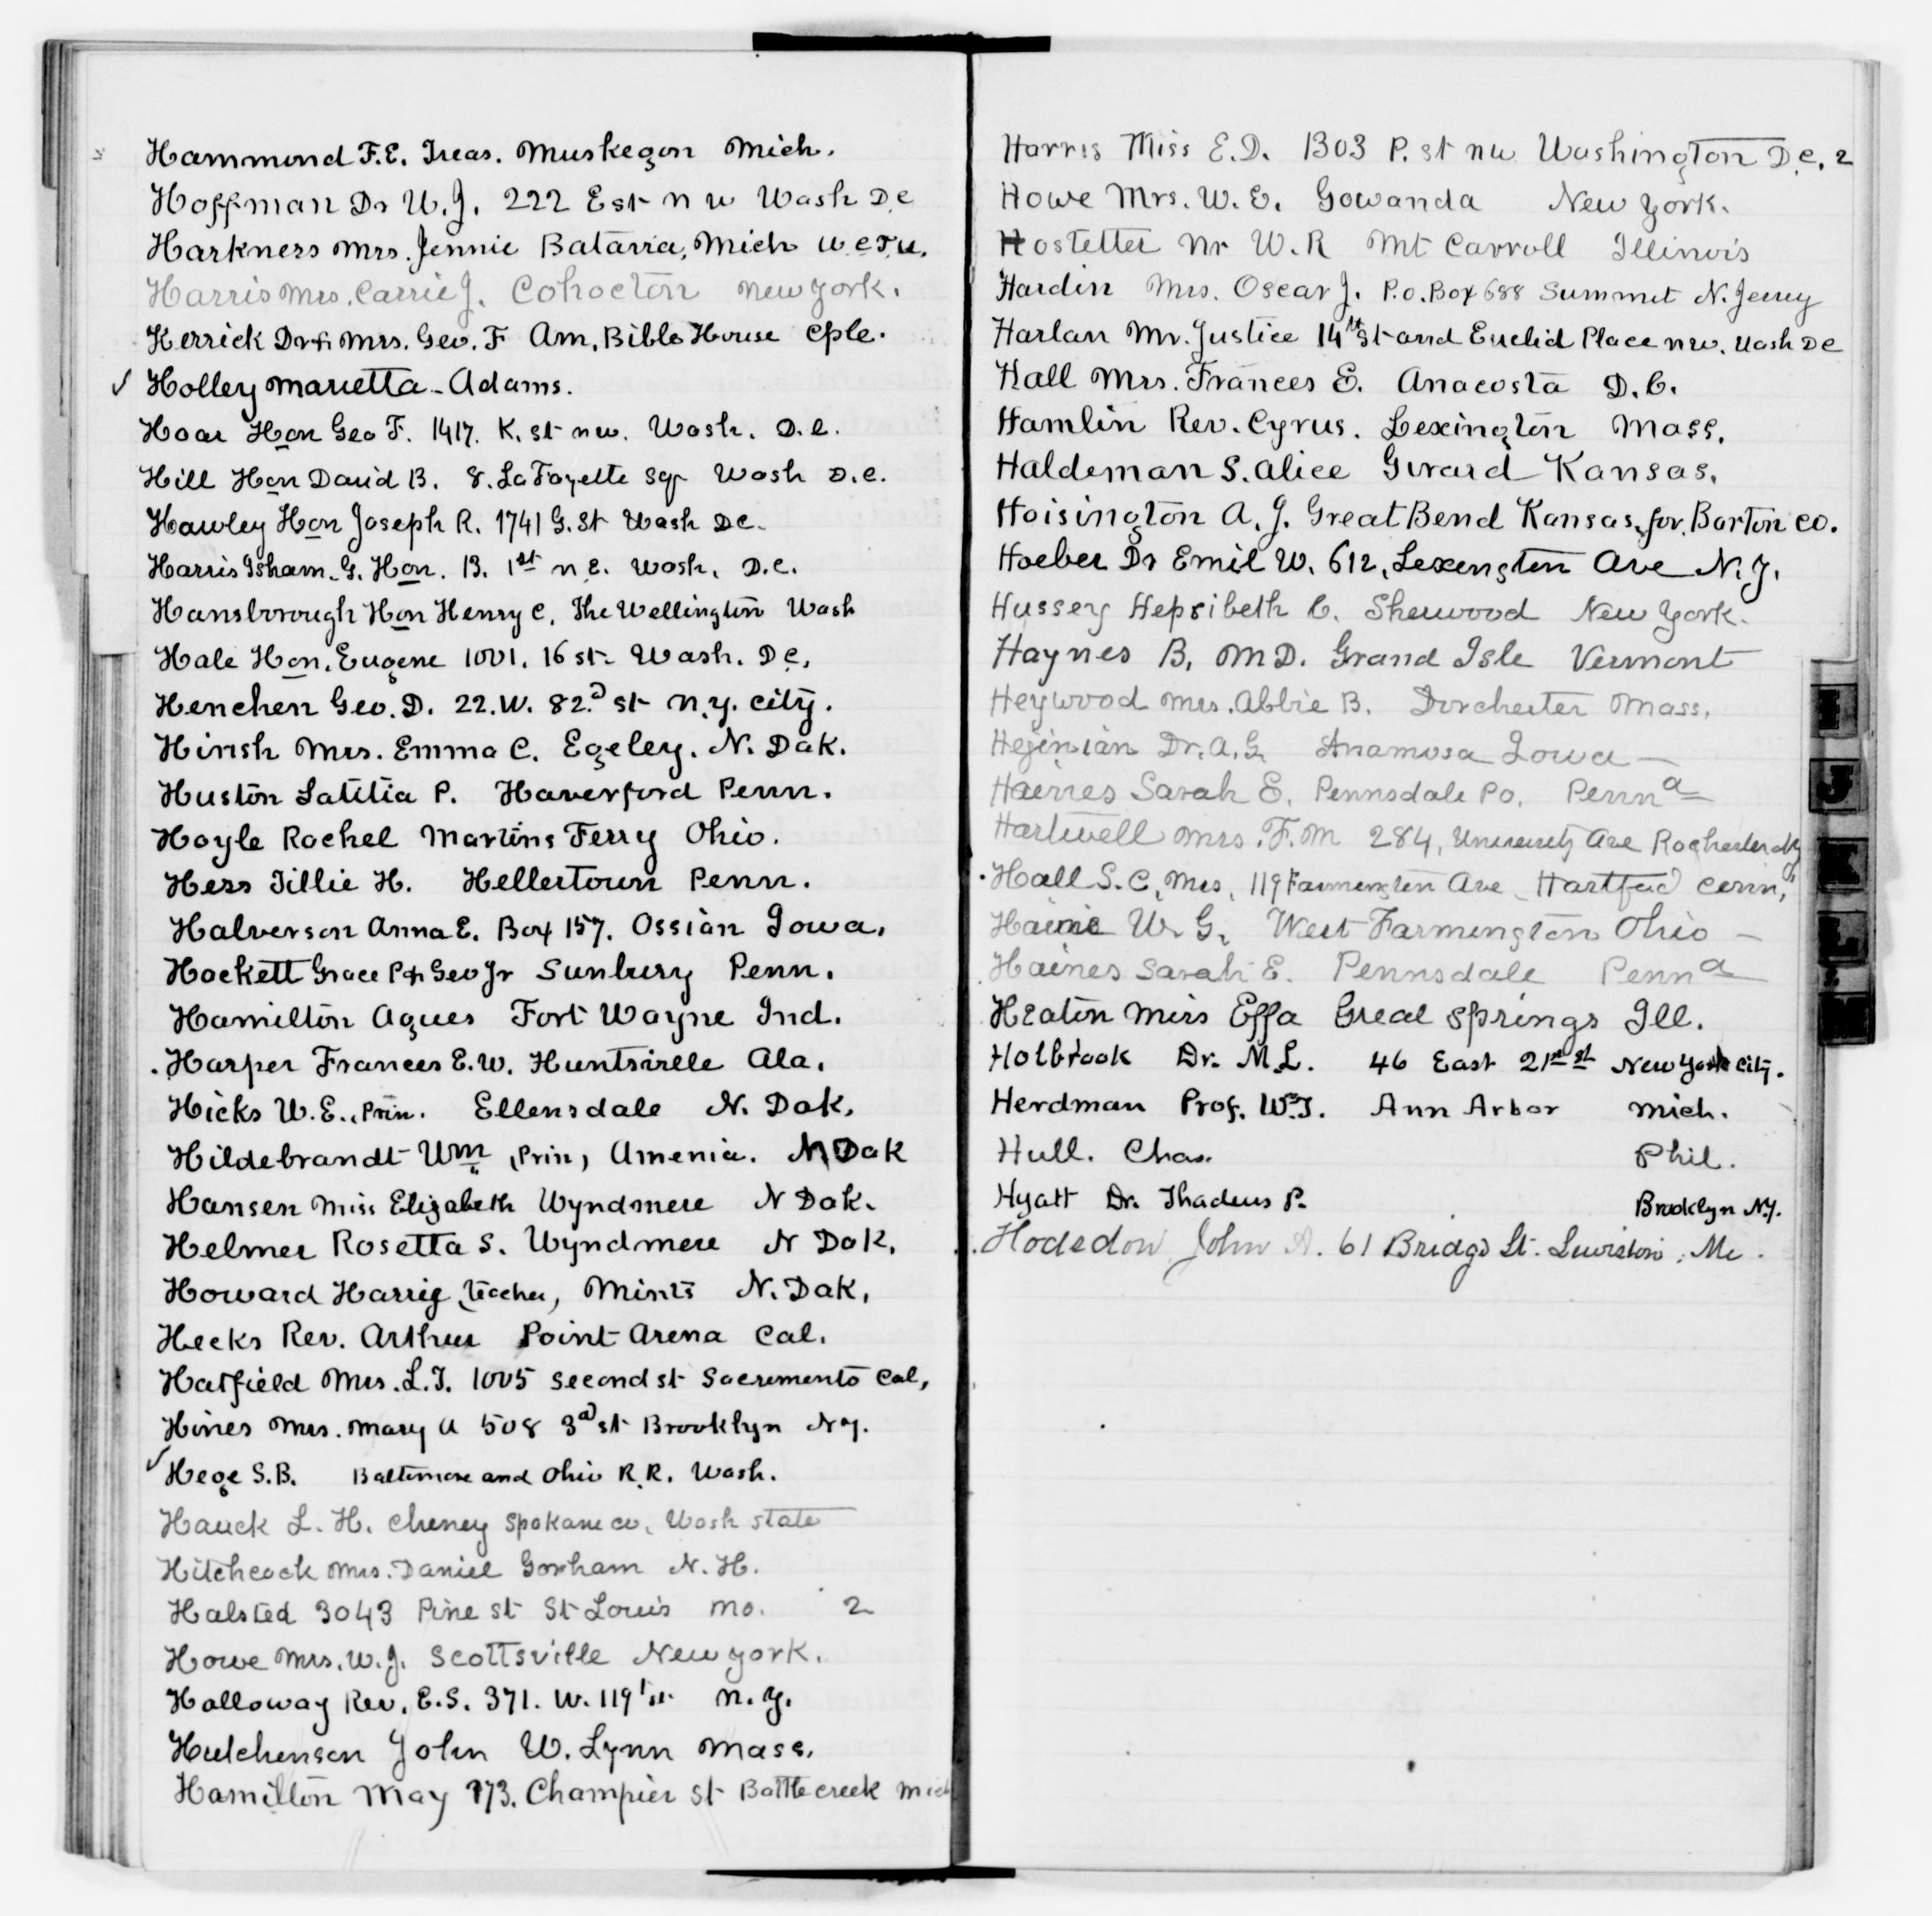 Hammond F.E. Treas. Muskegon Mich.
Hoffman Dr W.J. 222 E st n w Wash D.C
Harkness Mrs. Jennie Batavia, Mich W.C.T.U.
Harris Mrs. Carrie J. Cohocton New York.
Herrick Dr & Mrs. Geo. F Am. Bible House Cple.
✓ Holley Marietta - Adams.
Hoar Hon Geo F. 1417. K. st nw. Wash. D.C.
Hill Hon David B. 8. LaFayette Sqr Wash D.C.
Hawley Hon Joseph R. 1741 G. St Wash DC.
Harris Isham. G. Hon. 13. 1st n E. Wash. D.C.
Hansborough Hon Henry C. The Wellington Wash
Hale Hon. Eugene 1001. 16 st. Wash. D.C.
Henchen Geo. D. 22. W. 82.d st n.y. city.
Hirish Mrs. Emma C. Egeley. N. Dak.
Huston Latitia P. Haverford Penn.
Hoyle Rachel Martins Ferry Ohio.
Hess Tillie H. Hellertown Penn.
Halverson Anna E. Box 157. Ossian Iowa.
Hockett Grace P & Geo Jr Sunbury Penn.
Hamilton Agnes Fort Wayne Ind.
. Harper Frances E.W. Huntsville Ala.
Hicks W.E., Prin. Ellensdale N. Dak.
Hildebrandt Wm (Prin) Amenia. N Dak
Hansen Miss Elizabeth Wyndmere N Dak.
Helmer Rosetta S. Wyndmere N Dak.
Howard Harrig (teacher) Minto N. Dak.
Heeks Rev. Arthur Point Arena Cal.
Hatfield Mrs. L.T. 1005 Second st Sacremento Cal,
Hines Mrs. Mary A 508 3d st Brooklyn N.Y.
✓ Hege S.B. Baltimore and Ohio R.R. Wash.
Hauck L. H. Cheney Spokane co. Wash state
Hitchcock Mrs. Daniel Gorham N. H.
Halsted 3043 Pine st St Louis Mo. 2
Howe Mrs. W.J. Scottsville New York.
Holloway Rev. E.S. 371. W. 119 st. n.y.
Hutchenson John W. Lynn Mass.
Hamilton May 173. Champier St Battlecreek Mich
Harris Miss E.D. 1303 P. st nw Washington D.C. 2
Howe Mrs. W.E. Gowanda New York.
Hostetter Mr W.R Mt Carroll Illinois
Hardin Mrs. Oscar J. P.O. Box 688 Summit N. Jersey
Harlan Mr. Justice 14th St and Euclid Place nw. Wash DC
Hall Mrs. Frances E. Anacosta D.C.
Hamlin Rev. Cyrus. Lexington Mass.
Haldeman S. Alice Girard Kansas.
Hoisington A. J. Great Bend Kansas, for. Barton Co.
Hoeber Dr Emil W. 612, Lexengton Ave N.Y.
Hussey Hepsibeth C. Sherwood New York.
Haynes B. MD. Grand Isle Vermont
Heywood Mrs. Abbie B. Dorchester Mass.
Heginian Dr. A.G. Anamosa Iowa —
Haines Sarah E. Pennsdale Po. Penna
Hartwell Mrs. F.M 284, University Ave Rochester N.Y
. Hall S. C, Mrs, 119 Farmington Ave Hartford Conn,
Haine W. G. West Farmington Ohio —
Haines Sarah E. Pennsdale Penna
Heaton Miss Effa Creal Springs Ill.
Holbrook Dr. M.L. 46 East 21st st New York City.
Herdman Prof. W.J. Ann Arbor Mich.
Hull. Chas. Phil.
Hyatt Dr. Thadeus P. Brooklyn N.Y.
Hodsdon John A. 61 Bridge St. Lewiston, Me.
I
J
K
L